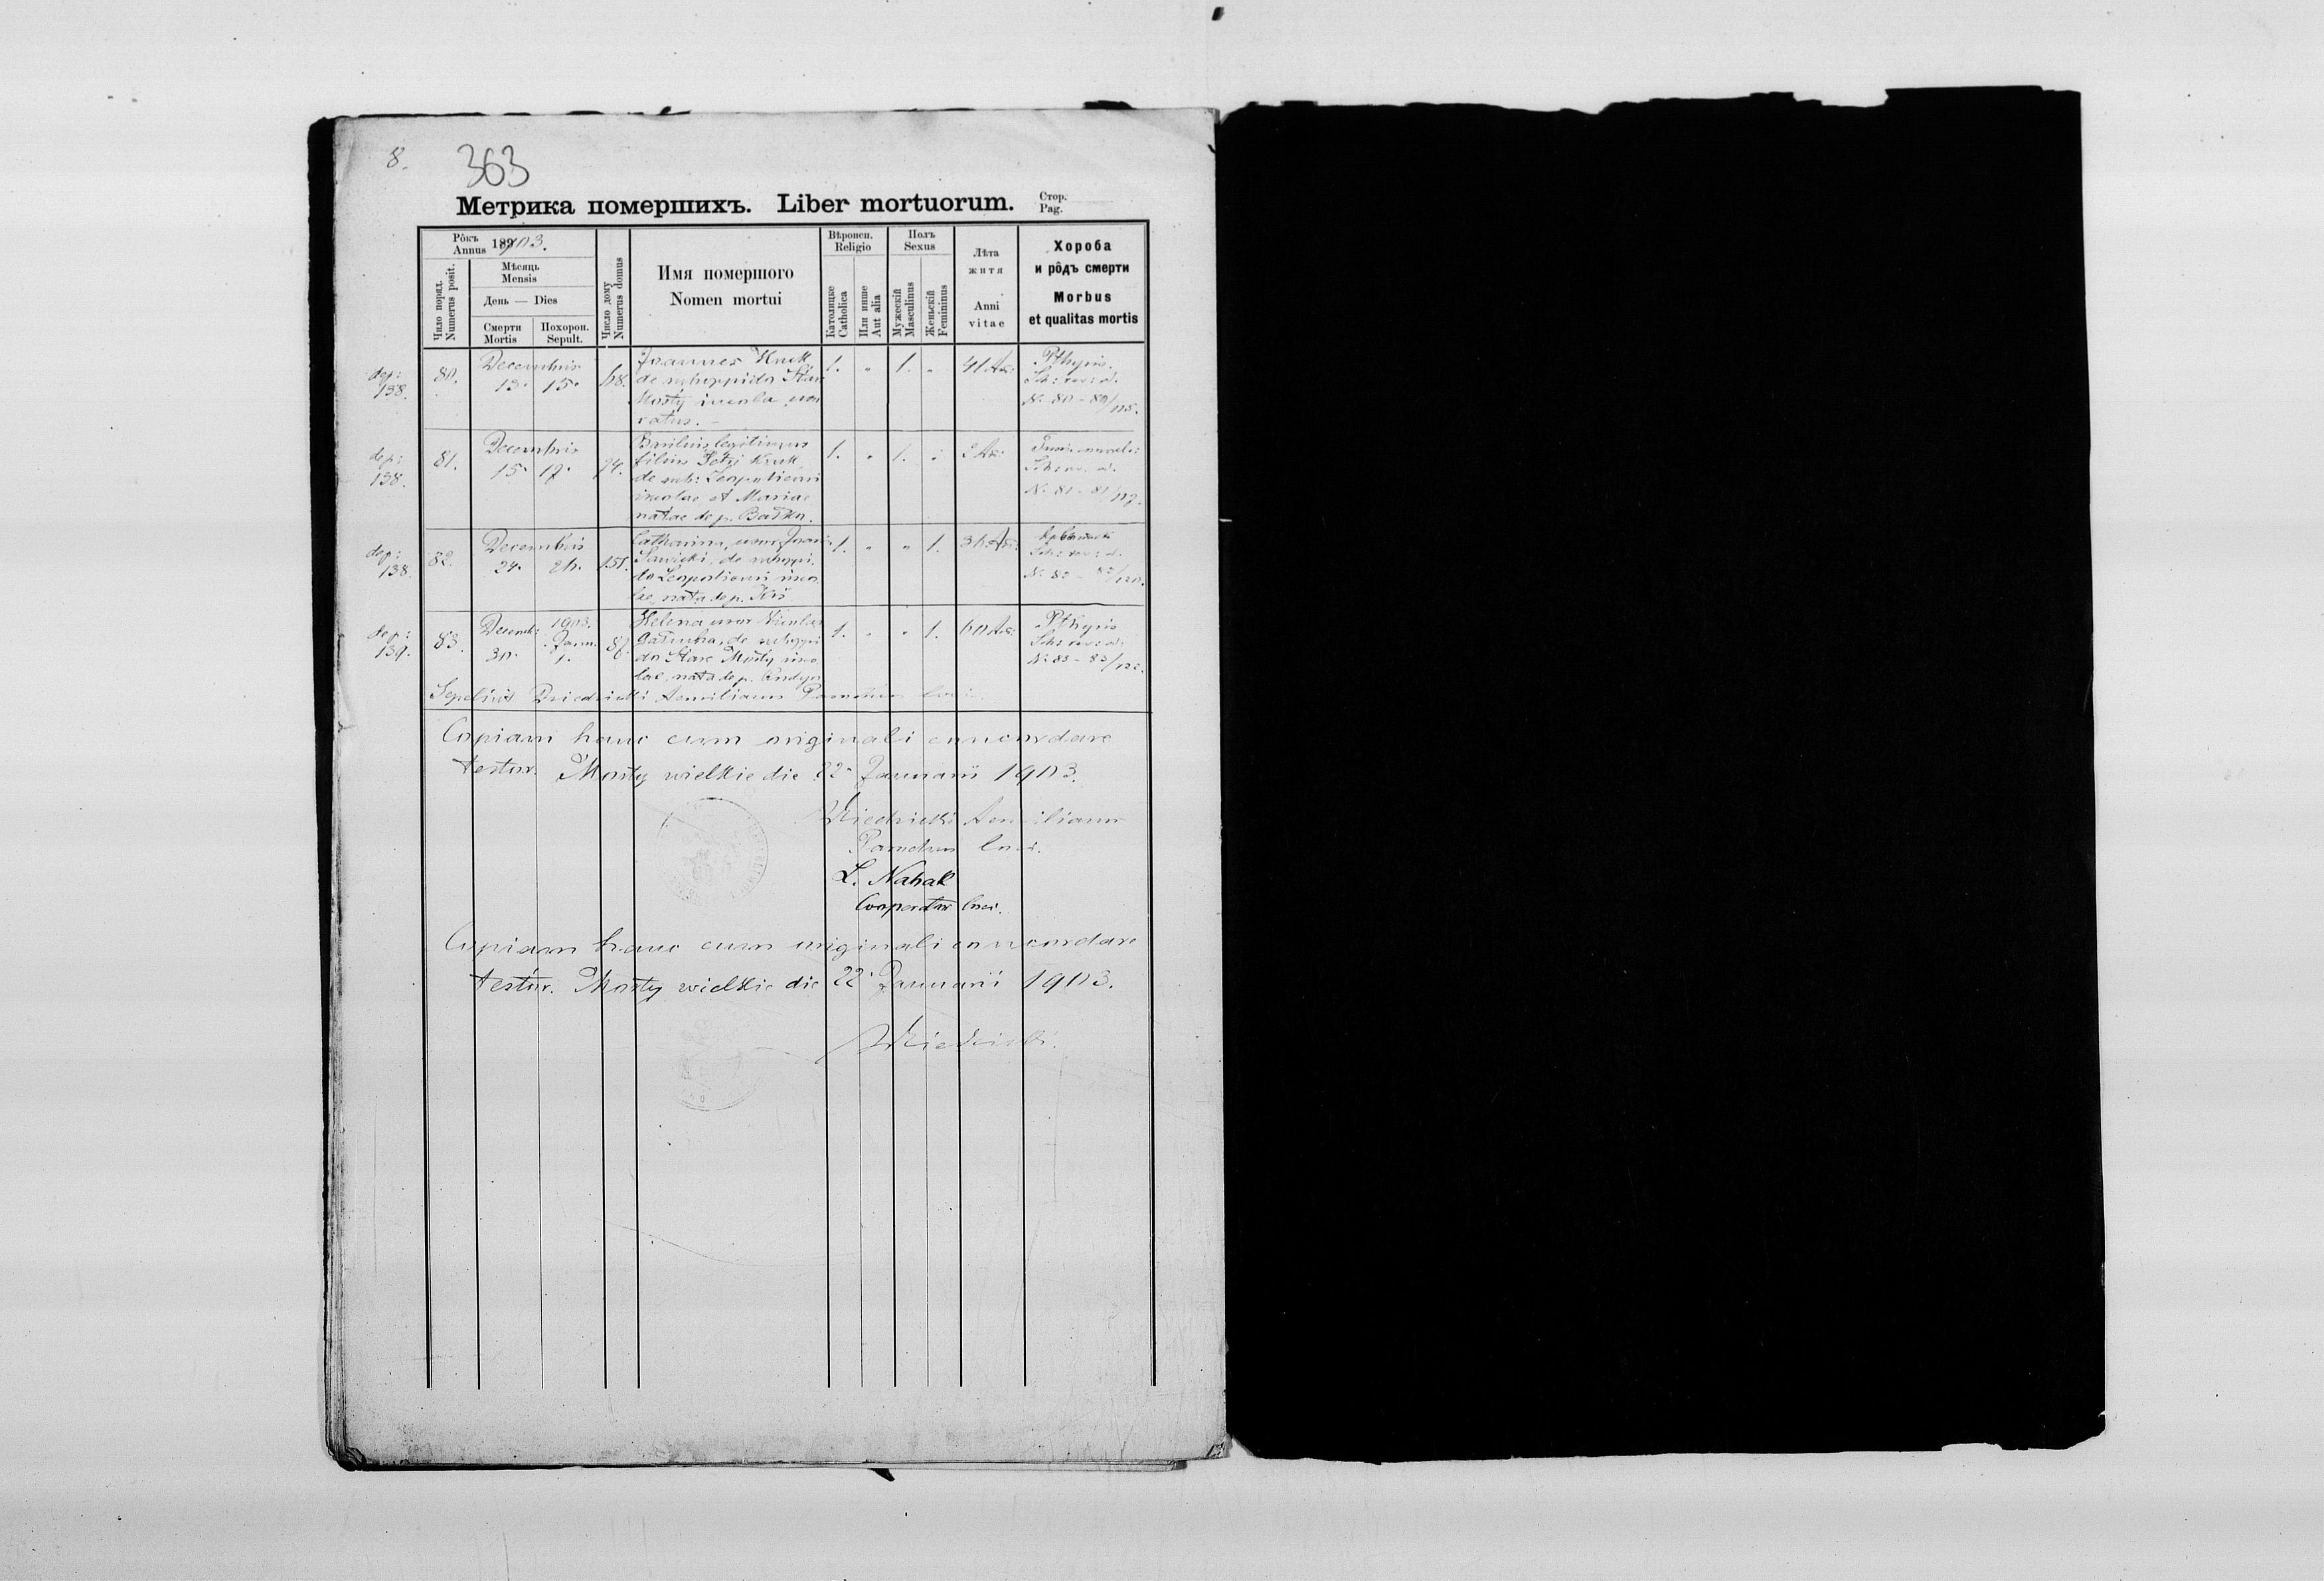 8.
363
Метрика помершихъ. Liber mortuorum.
Стор.
Pag.
Рôкъ
Annus 1903.
Мѣсяць
Mensis
День — Dies
Смерти
Mortis
Похорон.
Sepult.
Число поряд.
Numerus posit.
Число дому
Numerus domus
Имя помершого
Nomen mortui
Вѣроисп.
Religio
Католицке
Catholica
Или инше
Aut alia
Полъ
Sexus
Мужескій
Masculinus
Женьскій
Femininus
Лѣта
житя
Anni
vitae
Хороба
и рôдъ смерти
Morbus
et qualitas mortis
dep:
138.
80.
Decembris
13. 15.
68.
Joannes Kruk
de suboppido Stare
Mosty incola uxo
ratus. —
1. „ 1. „
41 An:
Pthysis.
Sch: rev: d.
N. 80 - 80/115.
dep:
138.
81.
Decembris
15. 17.
74.
Basilius legitimus
filius Petri Kruk
de sub: Leopoliensi
incolae et Mariae
natae de p. Baśko.
1. „ 1. „
2 An:
Sch: rev: d.
N. 81 - 81/117.
dep:
138.
82.
Decembris
24. 26.
151.
Catharina, uxor Joan:
Sawicki, de suboppi
do Leopoliensi inco
lae, nata de p. Kis
1. „ „ 1.
36 An:
Sch: rev: d.
N. 82 - 82/120.
dep:
139.
83.
Decemb:
30.
1903.
Janu.
1.
86.
Helena uxor Nicolai
de suboppi
do Stare Mosty inco
lae, nata de p.
1. „ „ 1.
60 An:
Pthysis
Sch: rev: d:
N. 83 - 83/122.
Sepelivit Dziedzicki Aemilianus Parochus loci.
Copiam hanc cum originali concordare
testor. Mosty wielkie die 22. Januarii 1903.
Dziedzicki Aemilianus
Parochus loci.
L. Nahak
Cooperator loci.
Copiam hanc cum originali concordare
testor. Mosty wielkie die 22. Januarii 1903.
Dziedzicki.